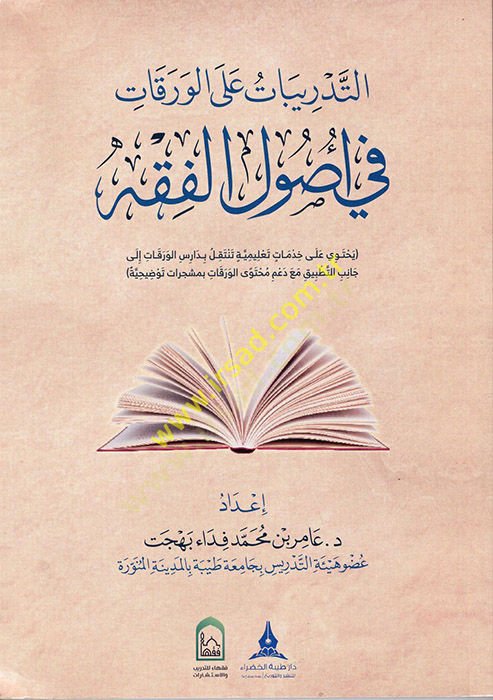 التَّدْرِيبَاتُ عَلَى الوَرَقَاتِ
فِي أُصُولِ الْفِقْهِ
(يَحْتَوِي عَلَى خِدْمَاتٍ تَعْلِيمِيَّةٍ تَنْتَقِلُ بِدَارِسِ الوَرَقَاتِ إِلَى
جَانِبِ التَّطْبِيقِ مَعَ دَعْمِ مُحْتَوَى الوَرَقَاتِ بِمشجرات تَوْضِيحِيَّةٌ)
www.irsad.com.tr
إِعْدَادُ
د. عَامِر بْن مُحَمَّد فِدَاء بَهْجَت
عُضْو هَيْئَة التَّدْرِيس بِجَامِعَة طَيْبَة بِالمَدِينَة المُنَوَّرَة
فقهاء للتدريب
والاستشارات
دار طيبة الخضراء